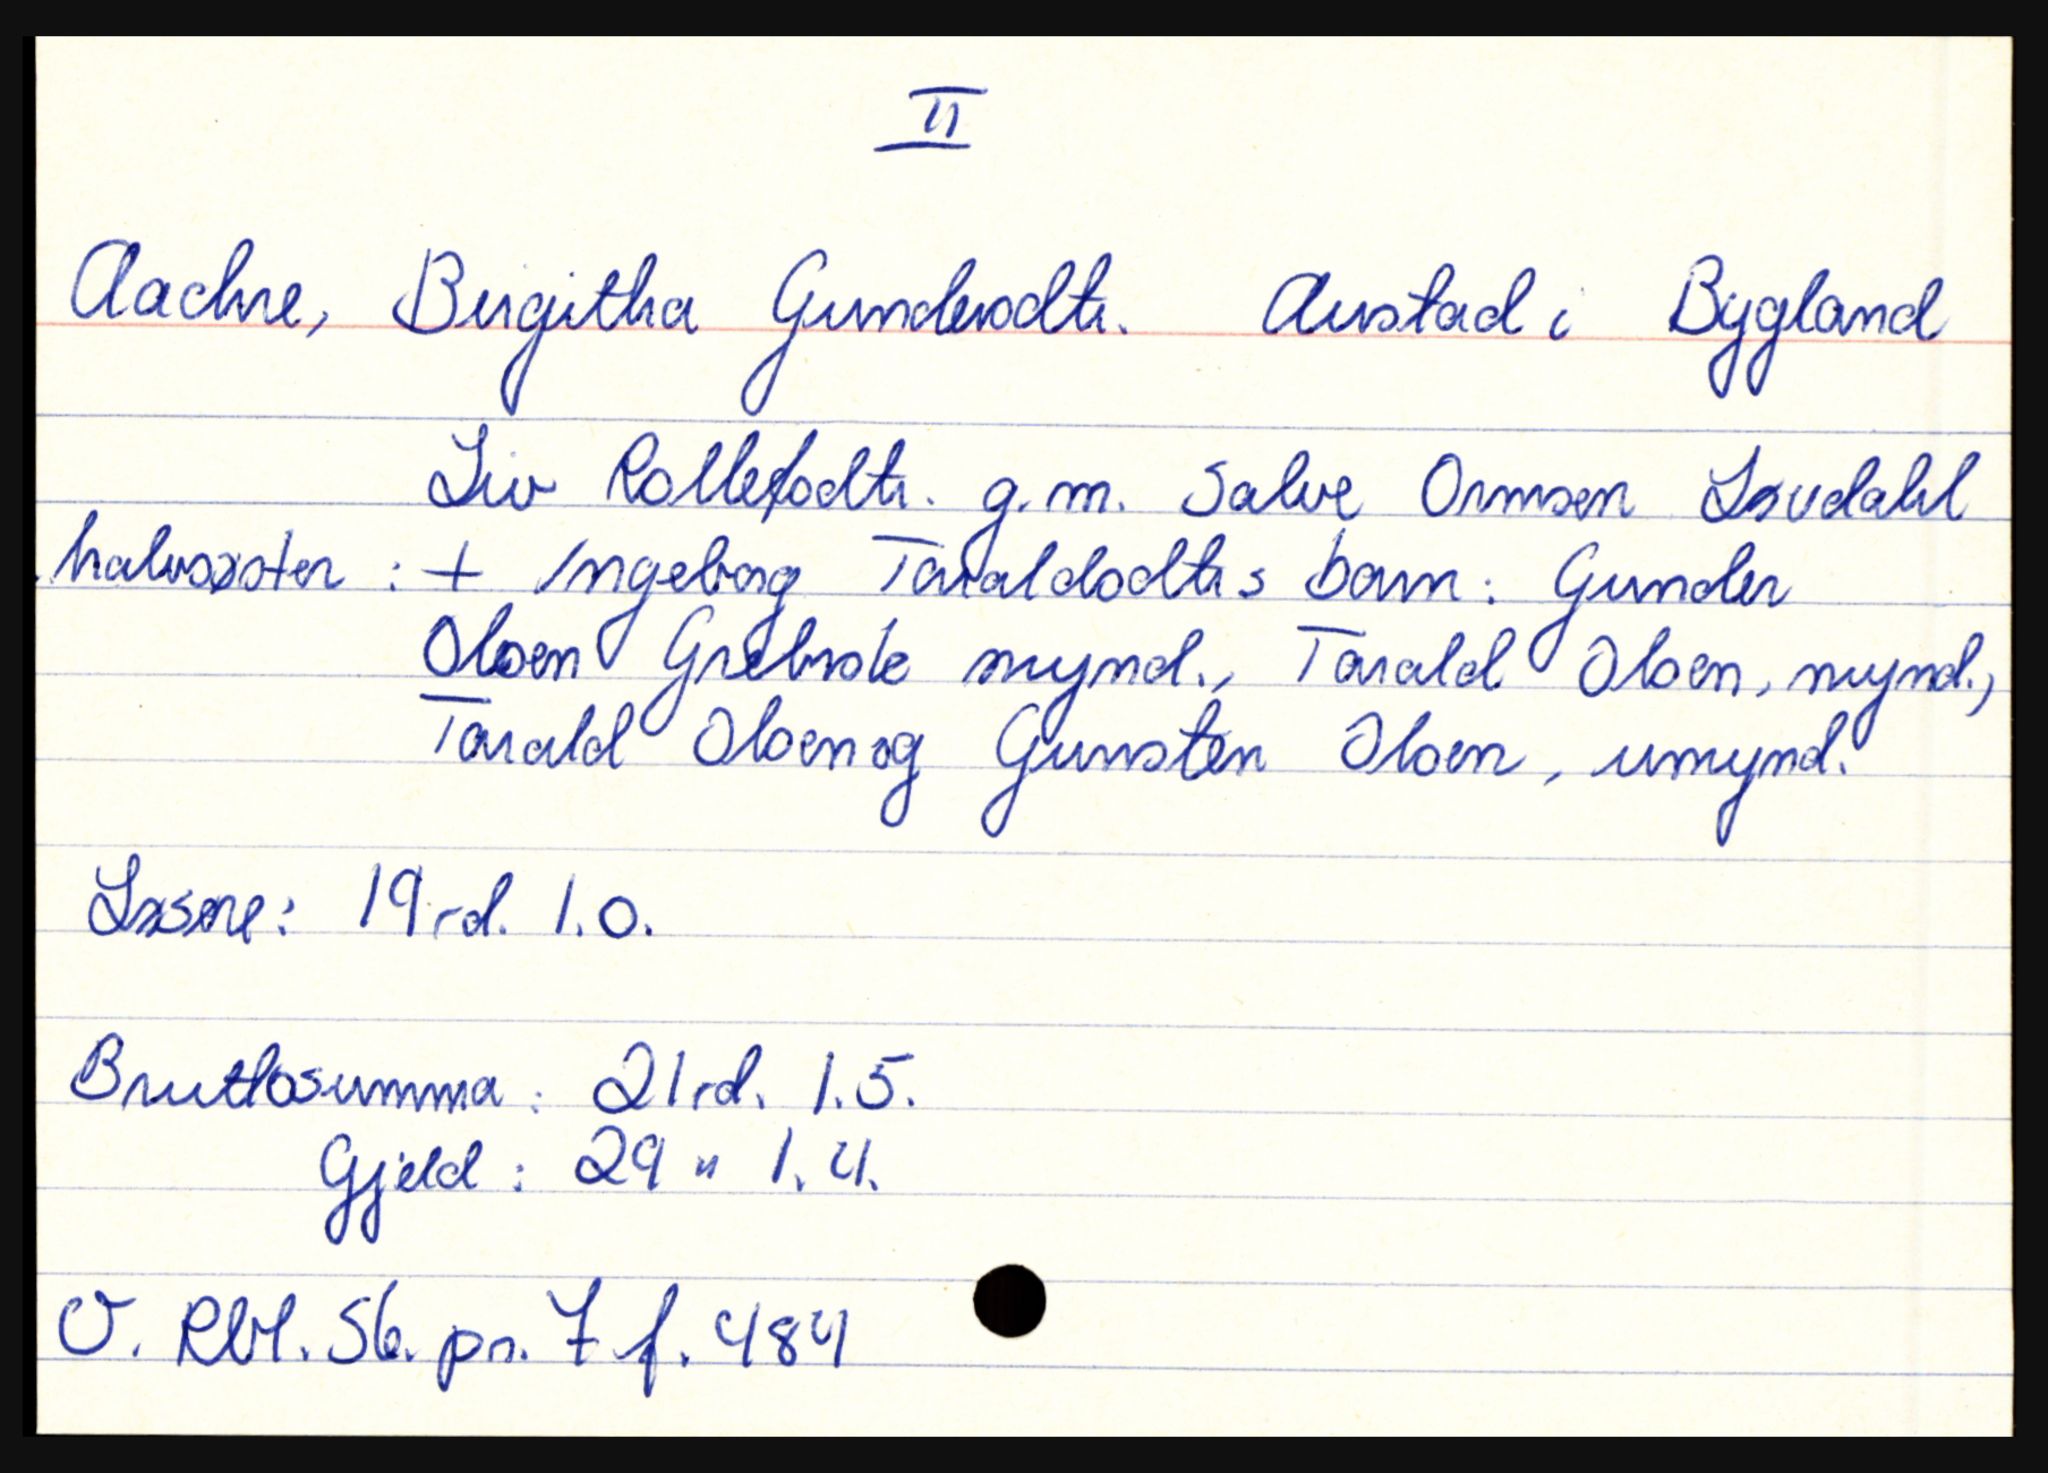 II
Aachre, Birgitha Gundersdtr. Austad i Bygland
Liv Rollefsdtr. g.m. Salve Ormsen Løvdahl
halvsøster : + Ingeborg Taraldsdtrs barn: Gunder
Olsen mynd., Tarald Olsen, mynd.,
Tarald Olsen og Gunsten Olsen, umynd.
Løsøre: 19 rd. 1.0.
Bruttosumma: 21 rd. 1.5.
Gjeld: 29 " 1.4.
V. Rbl. Sb. pr. 7 f. 484